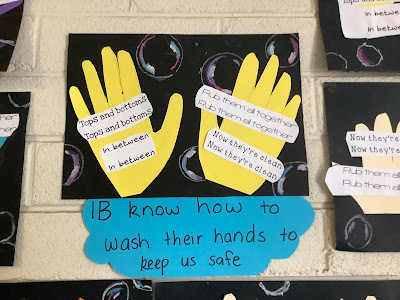 Tops and bottoms
Tops and bottoms
In between
In between
Rub them all together
Rub them all together
Now they're clean
Now they're clean
1B know how to
wash their hands to
keep us safe
In between
In between
Now they're
Now they're
Rub them all
Rub them all